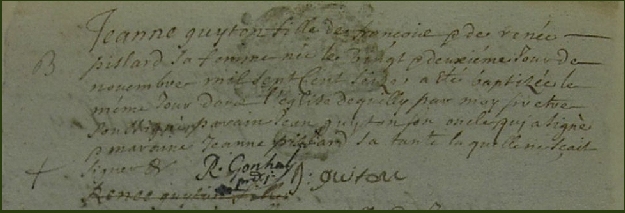 Jeanne guyton fille de francois & de renée
B pislard sa femme née le vingt & deuxiéme Jour de
novembre mil sept Cent a été baptizée le
même Jour dans l'eglise de quilly par moy prêtre
parain Jean guyton son oncle qui a signé
& maraine Jeanne pislard sa tante laquelle ne sçait
signer &
J: guitou
Renee guyton